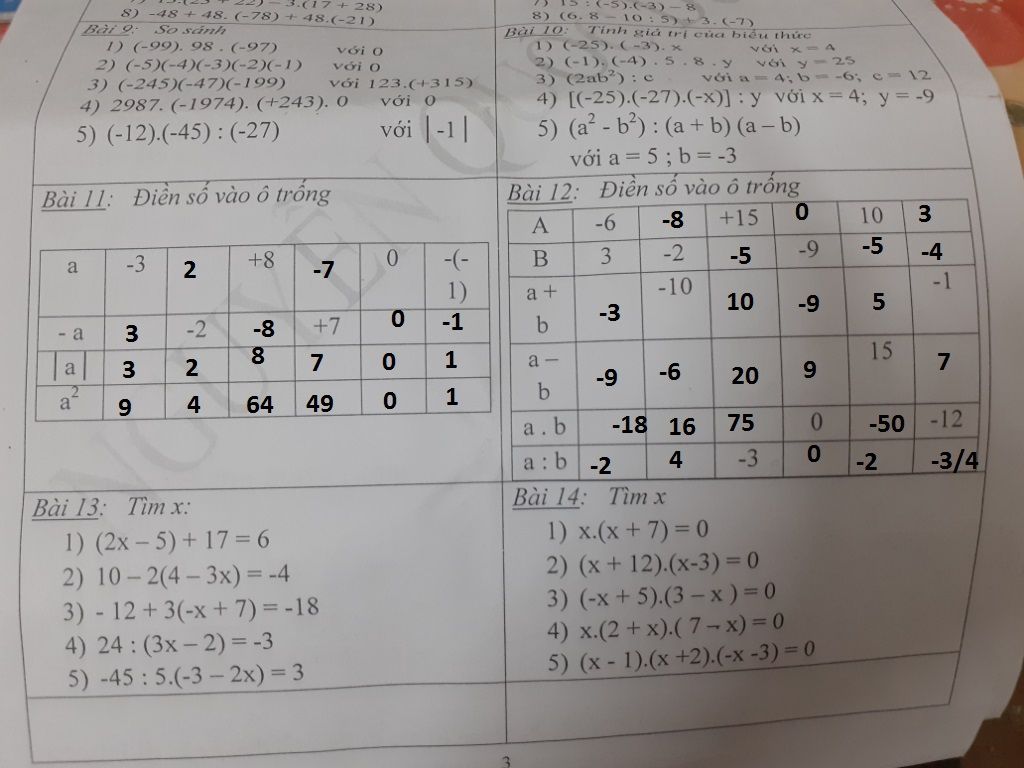 8) -48 + 48. (-78) + 48.(-21)
Bài 9: So sánh
1) (-99). 98 . (-97) với 0
2) (-5)(-4)(-3)(-2)(-1) với 0
3) (-245)(-47)(-199) với 123.(+315)
4) 2987. (-1974). (+243). 0 với 0
5) (-12).(-45) : (-27) với | -1 |
7) 15 : (-5).(-3) – 8
8) (6. 8 – 10 : 5) + 3. (-7)
Bài 10: Tính giá trị của biểu thức
1) (-25). ( -3). x với x = 4
2) (-1). (-4) . 5 . 8 . y với y = 25
3) (2ab²) : c với a = 4; b = -6; c = 12
4) [(-25).(-27).(-x)] : y với x = 4; y = -9
5) (a² - b²) : (a + b) (a – b)
với a = 5 ; b = -3
Bài 11: Điền số vào ô trống
a -3 2 +8 -7 0 -(-1)
- a 3 -2 -8 +7 0 -1
| a | 3 2 8 7 0 1
a² 9 4 64 49 0 1
Bài 12: Điền số vào ô trống
A -6 -8 +15 0 10 3
B 3 -2 -5 -9 -5 -4
a + b -3 -10 10 -9 5 -1
a – b -9 -6 20 9 15 7
a . b -18 16 75 0 -50 -12
a : b -2 4 -3 0 -2 -3/4
Bài 13: Tìm x:
1) (2x – 5) + 17 = 6
2) 10 – 2(4 – 3x) = -4
3) - 12 + 3(-x + 7) = -18
4) 24 : (3x – 2) = -3
5) -45 : 5.(-3 – 2x) = 3
Bài 14: Tìm x
1) x.(x + 7) = 0
2) (x + 12).(x-3) = 0
3) (-x + 5).(3 – x ) = 0
4) x.(2 + x).( 7 – x) = 0
5) (x - 1).(x +2).(-x -3) = 0
3